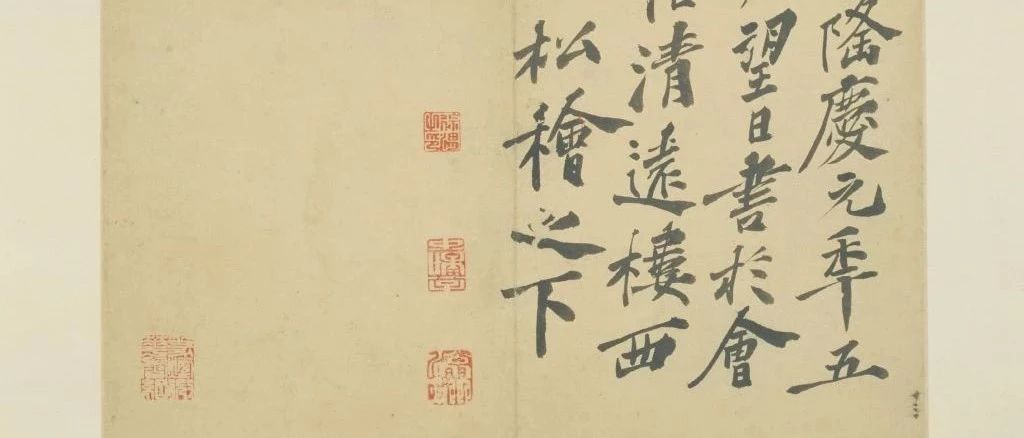 隆慶元年五
望日書於會
清遠樓西
松檜之下